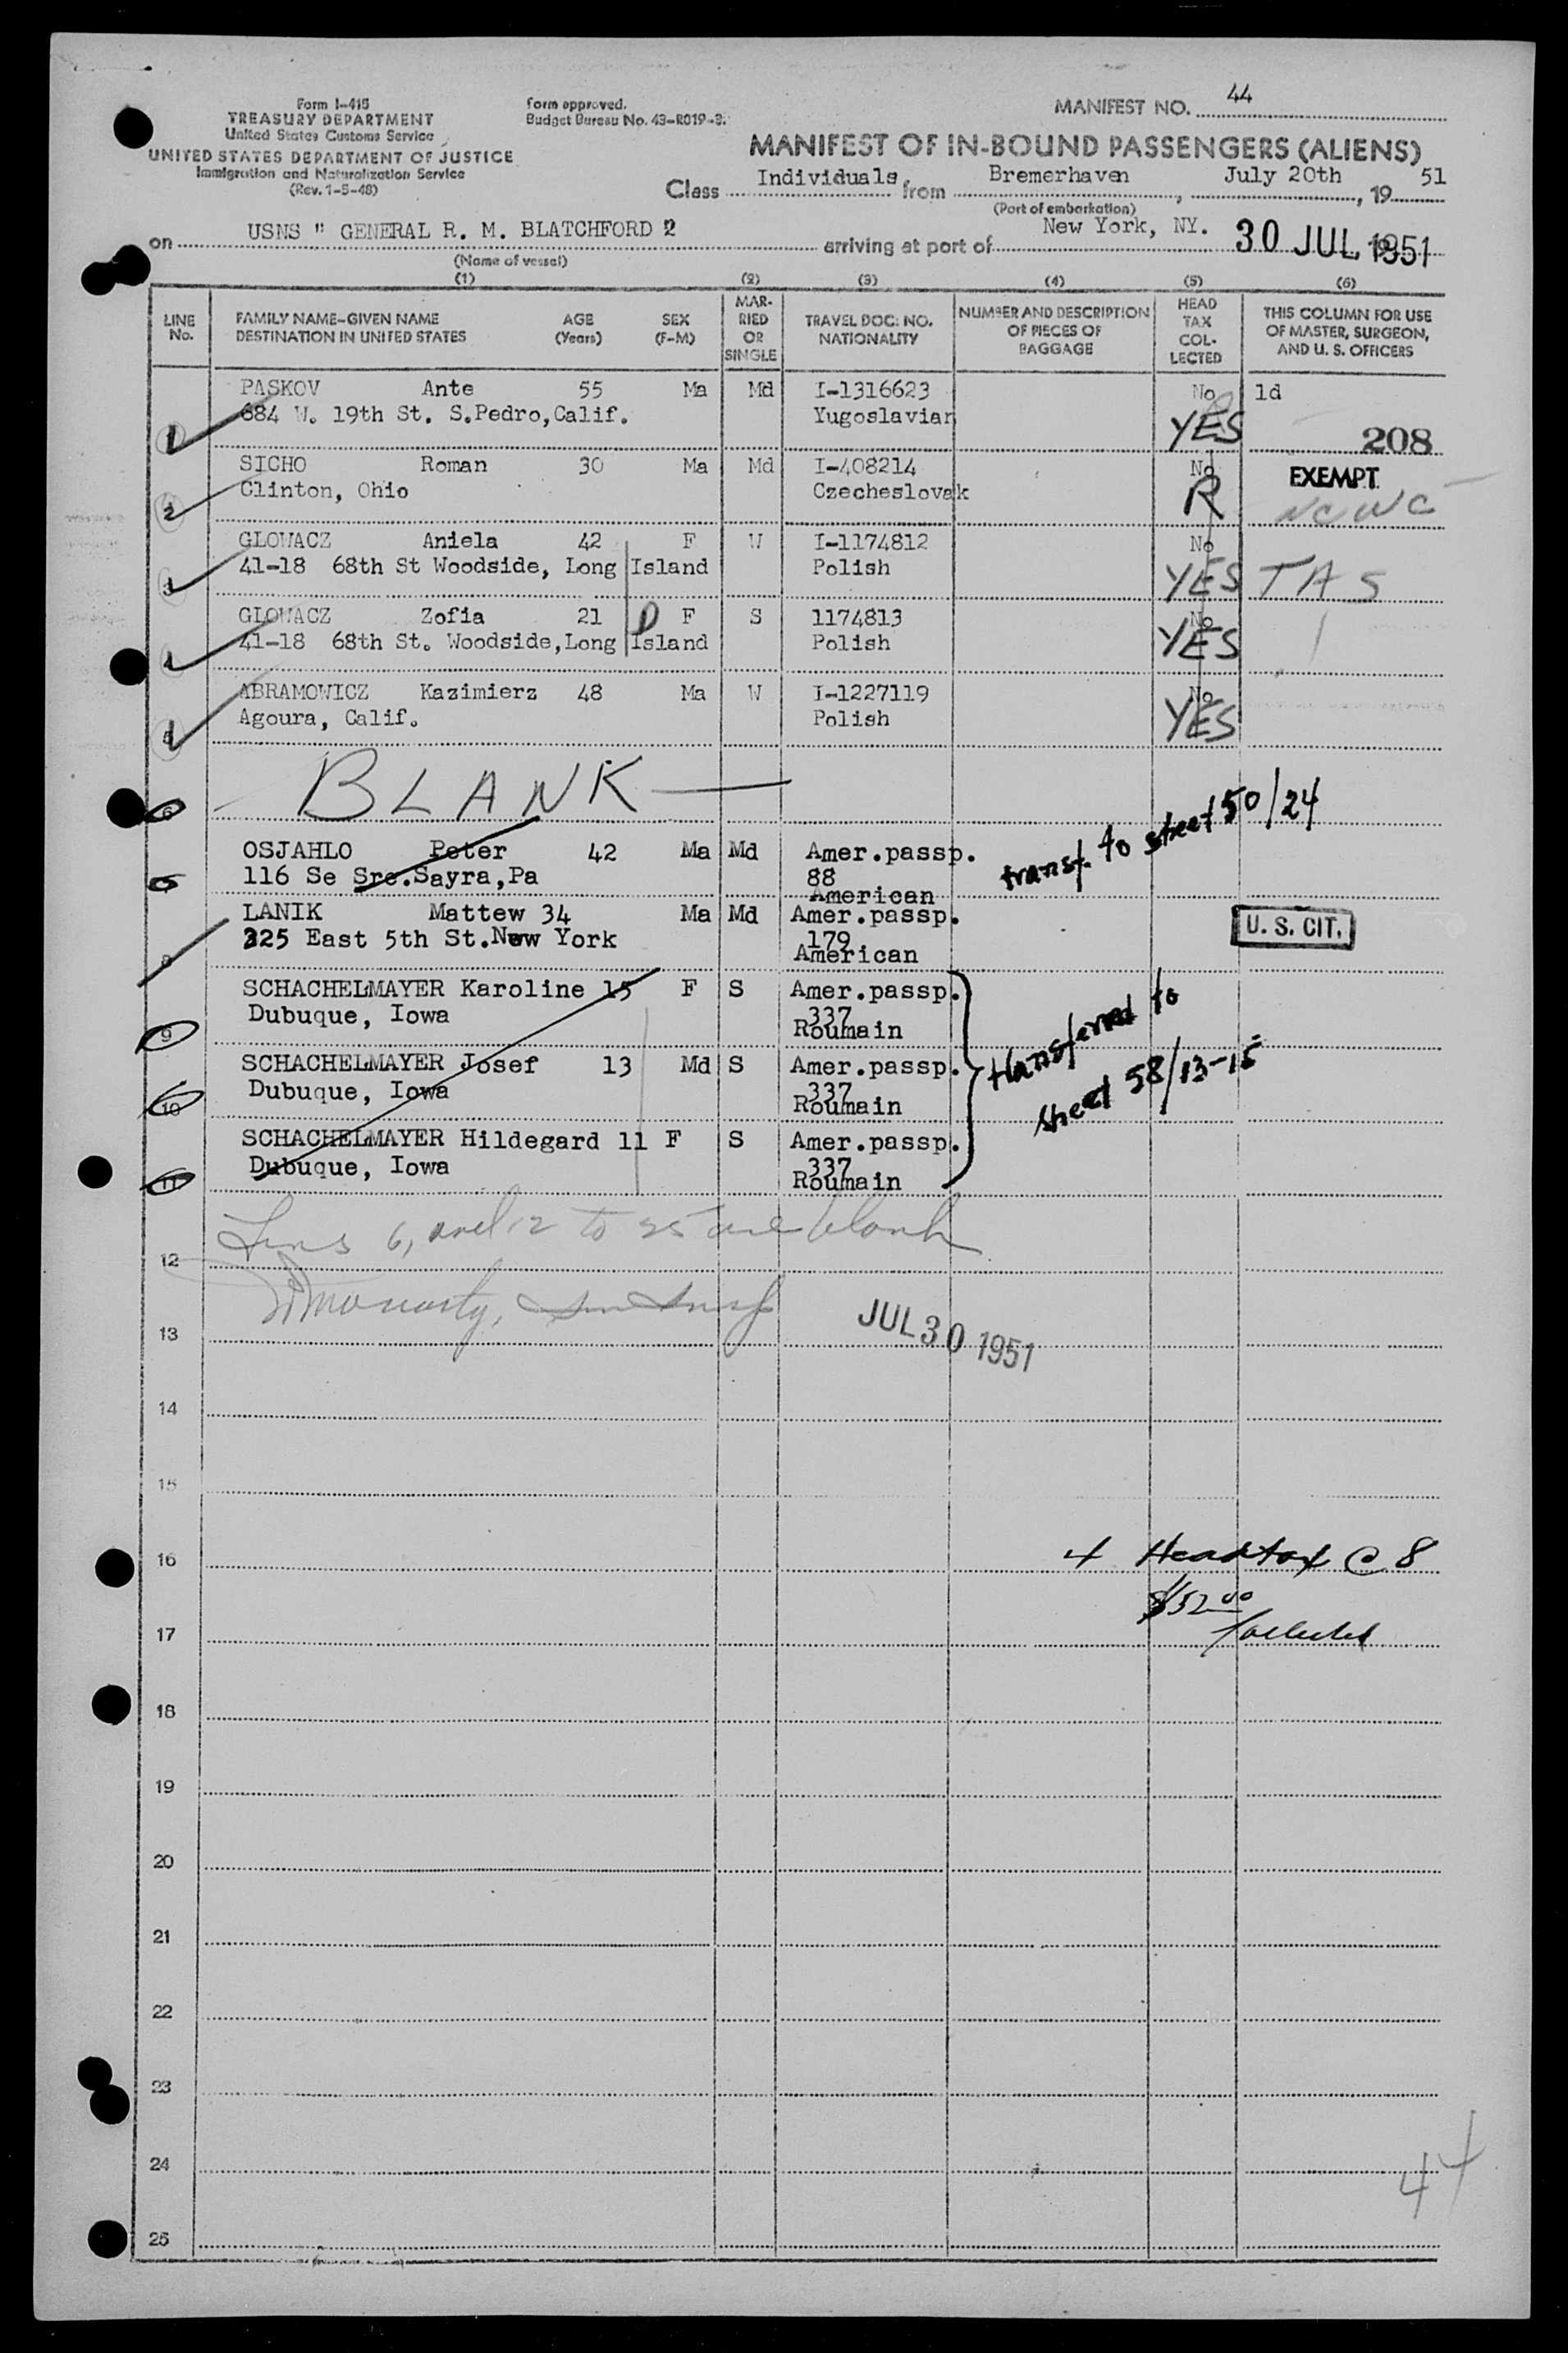 Form I-415
TREASURY DEPARTMENT
United States Customs Service
UNITED STATES DEPARTMENT OF JUSTICE
Immigration and Naturalization Service
(Rev. 1-5-48)
Form approved.
Budget Bureau No. 43-R019-3.
MANIFEST NO. 44
MANIFEST OF IN-BOUND PASSENGERS (ALIENS)
Class Individuals from Bremerhaven, July 20th, 19 51
(Port of embarkation)
on USNS " GENERAL R. M. BLATCHFORD 2 arriving at port of New York, NY. 30 JUL 1951
(Name of vessel)
(1) (2) (3) (4) (5) (6)
LINE No. FAMILY NAME-GIVEN NAME DESTINATION IN UNITED STATES AGE (Years) SEX (F-M) MARRIED OR SINGLE TRAVEL DOC. NO. NATIONALITY NUMBER AND DESCRIPTION OF PIECES OF BAGGAGE HEAD TAX COLLECTED THIS COLUMN FOR USE OF MASTER, SURGEON, AND U. S. OFFICERS
PASKOV Ante 55 Ma Md I-1316623 No ld
1 684 W. 19th St. S.Pedro,Calif. Yugoslavian YES 208
SICHO Roman 30 Ma Md I-408214 No EXEMPT
2 Clinton, Ohio Czecheslovak R NCWC
GLOWACZ Aniela 42 F W I-1174812 No
3 41-18 68th St Woodside, Long Island Polish YES TAS
GLOWACZ Zofia 21 F S 1174813 No
4 41-18 68th St. Woodside,Long Island Polish YES
ABRAMOWICZ Kazimierz 48 Ma W I-1227119 No
5 Agoura, Calif. Polish YES
6 BLANK
OSJAHLO Peter 42 Ma Md Amer.passp. transf. to sheet 50/24
116 Se Sre.Sayra,Pa 88
American
LANIK Mattew 34 Ma Md Amer.passp. U. S. CIT.
8 325 East 5th St.New York 179
American
SCHACHELMAYER Karoline 15 F S Amer.passp.
9 Dubuque, Iowa 337
Roumain
SCHACHELMAYER Josef 13 Md S Amer.passp. transferred to
10 Dubuque, Iowa 337 sheet 58/13-15
Roumain
SCHACHELMAYER Hildegard 11 F S Amer.passp.
11 Dubuque, Iowa 337
Roumain
12 Lines 6, and 12 to 25 are blank
13 JUL 30 1951
14
15
16 4 Headtax @ 8
$32.00
17 Collected
18
19
20
21
22
23
24
44
25